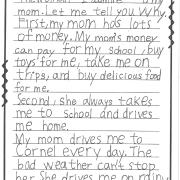 mom. Let me tell you why.
First, my mom has lots
of money. My mom's money
can pay for my school, buy
toys for me, take me on
trips, and buy delicious food
for me.
Second, she always takes
me to school and drives
me home.
My mom drives me to
Cornel every day. The
bad weather can't stop
her. She drives me on rainy